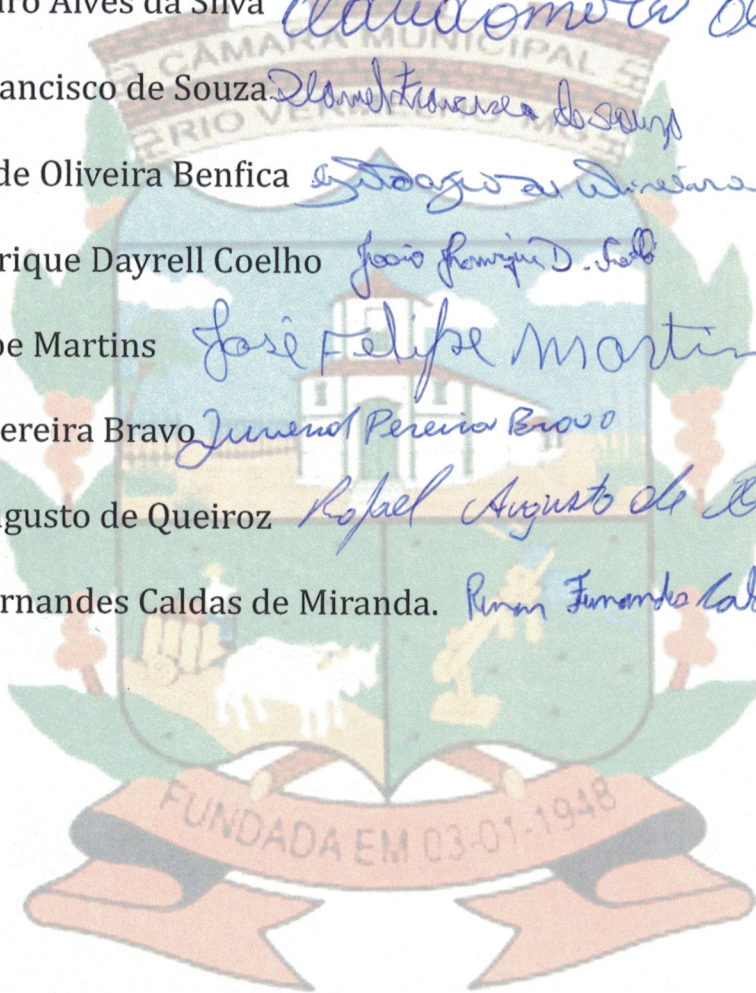 ro Alves da Silva
CÂMARA MUNICIPAL
ancisco de Souza Francisco de Souza
RIO VERMELHO MG
de Oliveira Benfica de Oliveira
rique Dayrell Coelho João Henrique D.
pe Martins José Felipe Martin
ereira Bravo Juvenal Pereira Bravo
ugusto de Queiroz Rafael Augusto de
rnandes Caldas de Miranda. Renan Fernandes
FUNDADA EM 03-01-1948